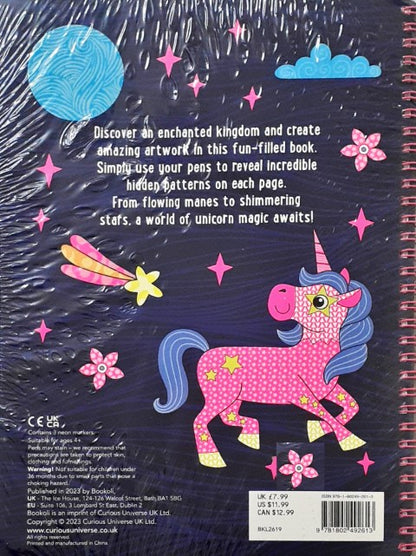 Discover an enchanted kingdom and create
amazing artwork in this fun-filled book.
Simply use your pens to reveal incredible
hidden patterns on each page.
From flowing manes to shimmering
stars, a world of unicorn magic awaits!
CE UK CA
Contains 3 neon markers.
Suitable for ages 4+.
Pens may stain – we recommend that
precautions are taken to protect skin,
clothing and furnishings.
Warning! Not suitable for children under
36 months due to small parts that pose a
choking hazard.
Published in 2023 by Bookoli.
UK - The Ice House, 124-126 Walcot Street, Bath, BA1 5BG
EU - Suite 106, 3 Lombard St East, Dublin 2
Bookoli is an imprint of Curious Universe UK Ltd.
Copyright © 2023 Curious Universe UK Ltd.
www.curiousuniverse.co.uk
All rights reserved
Printed and manufactured in China
UK £7.99
US $11.99
CAN $12.99
BKL2619
9 781802 492613